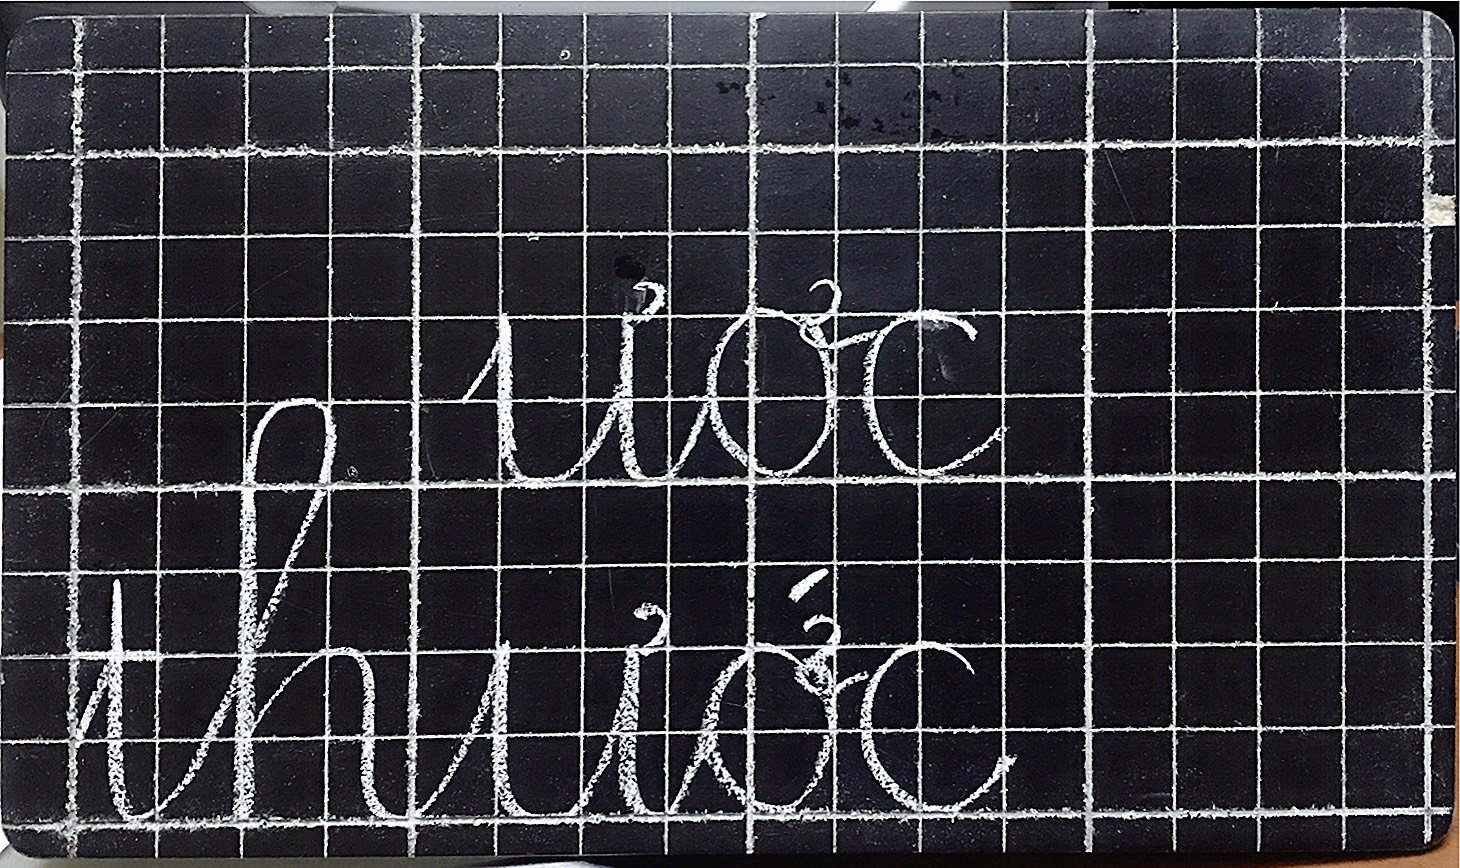 ươc
thước